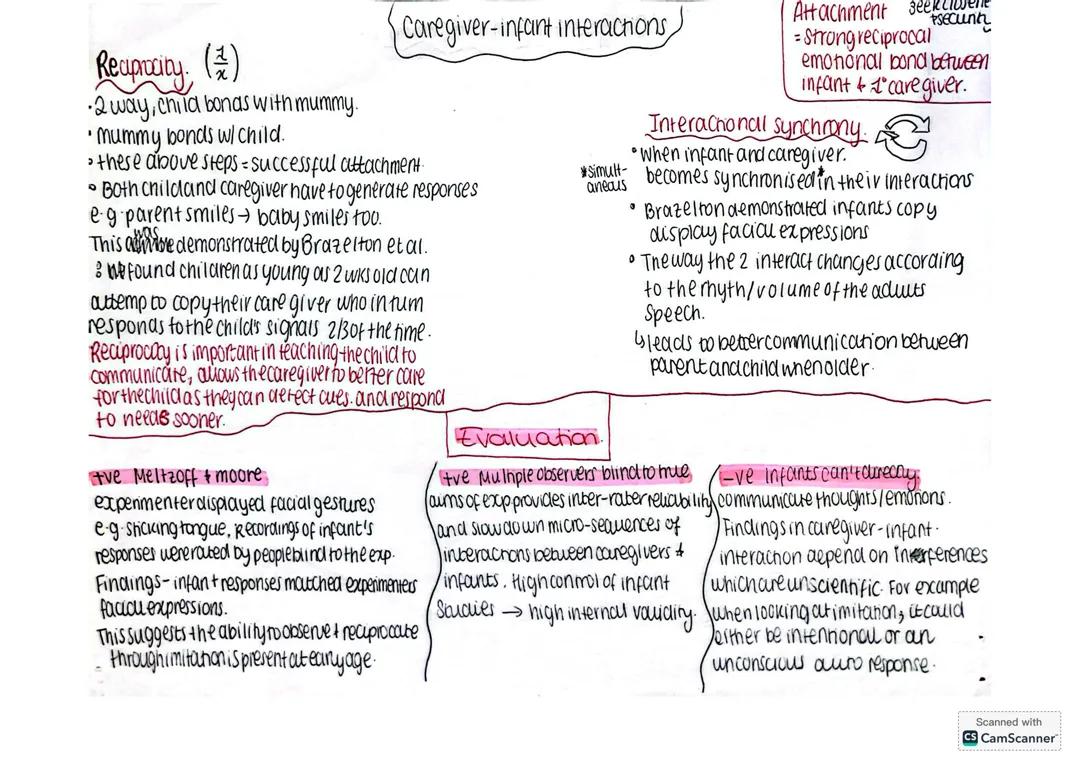 Caregiver-infant interactions
Attachment seek closene
+security
= Strong reciprocal
emotional bond between
infant & 1° caregiver.
Reciprocity. (1/x)
• 2 way, child bonds with mummy.
• mummy bonds w/ child.
• these above steps = successful attachment.
• Both child and caregiver have to generate responses
e.g. parent smiles → baby smiles too.
This was demonstrated by Brazelton et al.
found children as young as 2 wks old can
attemp to copy their care giver who in turn
responds to the child's signals 2/3 of the time.
Reciprocity is important in teaching the child to
communicate, allows the caregiver to better care
for the child as they can detect cues. and respond
to needs sooner.
Interactional synchrony.
• When infant and caregiver.
becomes synchronised* in their interactions
*simult-
aneous
• Brazelton demonstrated infants copy
display facial expressions
• The way the 2 interact changes according
to the rhyth/volume of the adults
Speech.
↳ leads to better communication between
parent and child when older.
Evaluation.
+ve Meltzoff & moore
experimenter displayed facial gestures
e.g. sticking tongue, Recordings of infant's
responses were rated by people blind to the exp.
Findings - infant responses matched experimenters
facial expressions.
This suggests the ability to observe & reciprocate
through imitation is present at early age.
+ve Multiple observers blind to true
aims of exp provides inter-rater reliability
and slow down micro-sequences of
interactions between caregivers &
infants. High control of infant
Studies → high internal validity.
-ve infants can't directly
communicate thoughts/emotions.
Findings in caregiver-infant.
interaction depend on Inferences
which are unscientific. For example
when looking at imitation, it could
either be intentional or an
unconscious auto response.
Scanned with
CS CamScanner